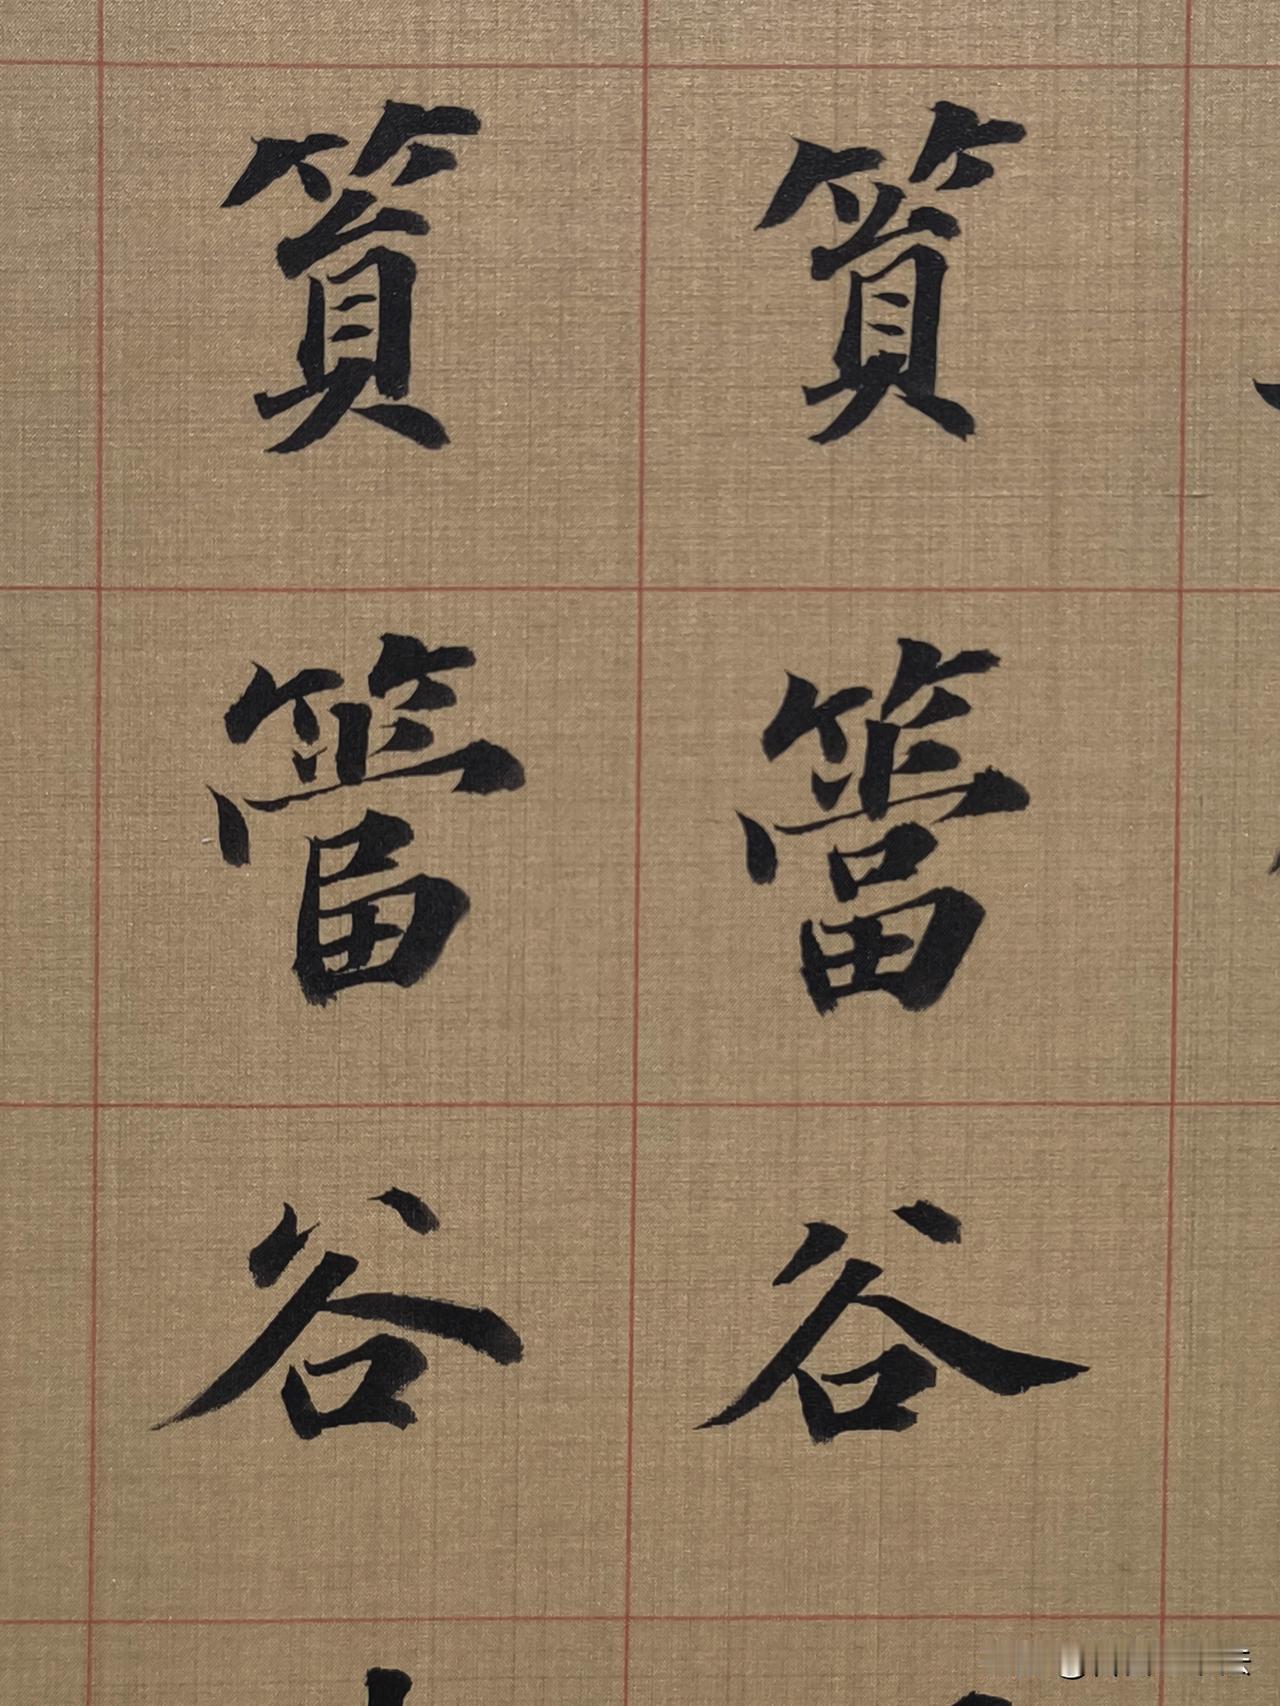 篔簹谷
篔簹谷